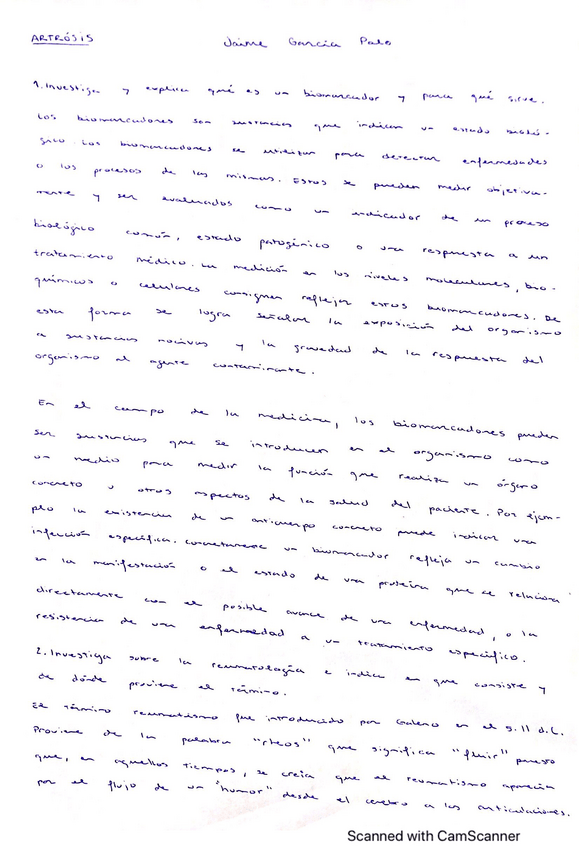 ARTRÓSIS Jaime García Palo
1. Investiga y explica qué es un biomarcador y para qué sirve.
Los biomarcadores son sustancias que indican un estado bioló-
gico. Los biomarcadores se utilizan para detectar enfermedades
o los procesos de las mismas. Estos se pueden medir objetiva-
mente y ser evaluados como un indicador de un proceso
biológico común, estado patogénico o una respuesta a un
tratamiento médico. La medición en los niveles moleculares, bio-
químicos o celulares consiguen reflejar estos biomarcadores. De
esta forma se logra señalar la exposición del organismo
a sustancias nocivas y la gravedad de la respuesta del
organismo al agente contaminante.
En el campo de la medicina, los biomarcadores pueden
ser sustancias que se introducen en el organismo como
un medio para medir la función que realiza un órgano
concreto u otros aspectos de la salud del paciente. Por ejem-
plo la existencia de un anticuerpo concreto puede indicar una
infección específica. Concretamente un biomarcador refleja un cambio
en la manifestación o el estado de una proteína que se relaciona
directamente con el posible avance de una enfermedad, o la
resistencia de una enfermedad a un tratamiento específico.
2. Investiga sobre la reumatología e indica en que consiste y
de dónde proviene el término.
El término reumatismo fue introducido por Galeno en el s. II d.C.
Proviene de la palabra "rheos" que significa "fluir" puesto
que, en aquellos tiempos, se creía que el reumatismo aparecía
por el flujo de un "humor" desde el cerebro a las articulaciones.
Scanned with CamScanner